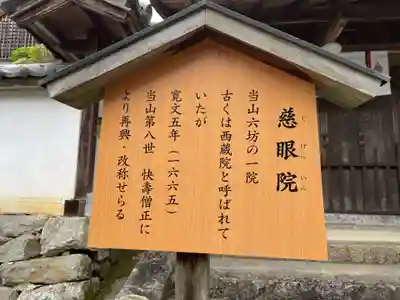 慈眼院
じげんいん
当山六坊の一院
古くは西蔵院と呼ばれて
いたが
寛文五年（一六六五）
当山第八世　快壽僧正に
より再興・改称せらる